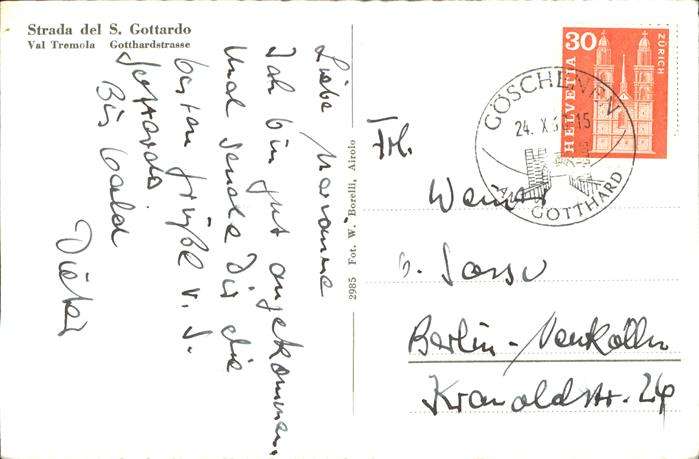 Strada del S. Gottardo
Val Tremola Gotthardstrasse
Liebe Marianne
Ich bin gut angekommen
und sende Dir die
besten Grüße v. S.
Gottardo
Bis bald
Dieter
2985 Fot. W. Borelli, Airolo
30
HELVETIA
ZÜRICH
GÖSCHENEN
24. X. 15
GOTTHARD
Frl.
b.
Berlin-Neukölln
Kranoldstr. 24